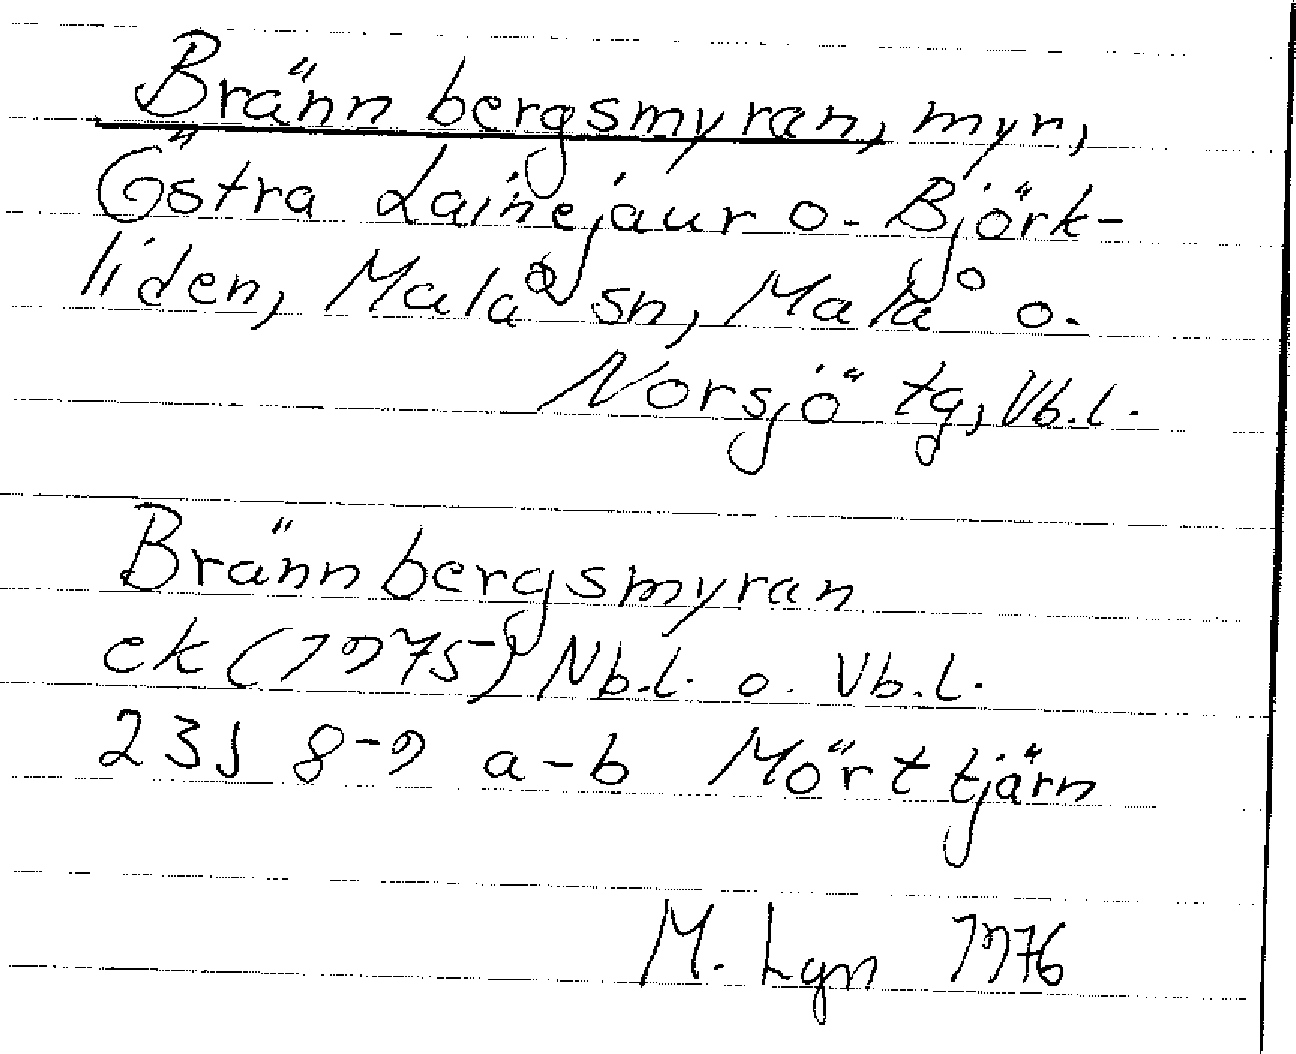 Brännbergsmyran, myr,
Östra Lainejaur o. Björk-
liden, Malå sn, Malå o.
Norsjö tg, Vb.l.
Brännbergsmyran
ek (1975) Nb.l. o. Vb.l.
23J 8-9 a-b Mörttjärn
M. Lgn 1976